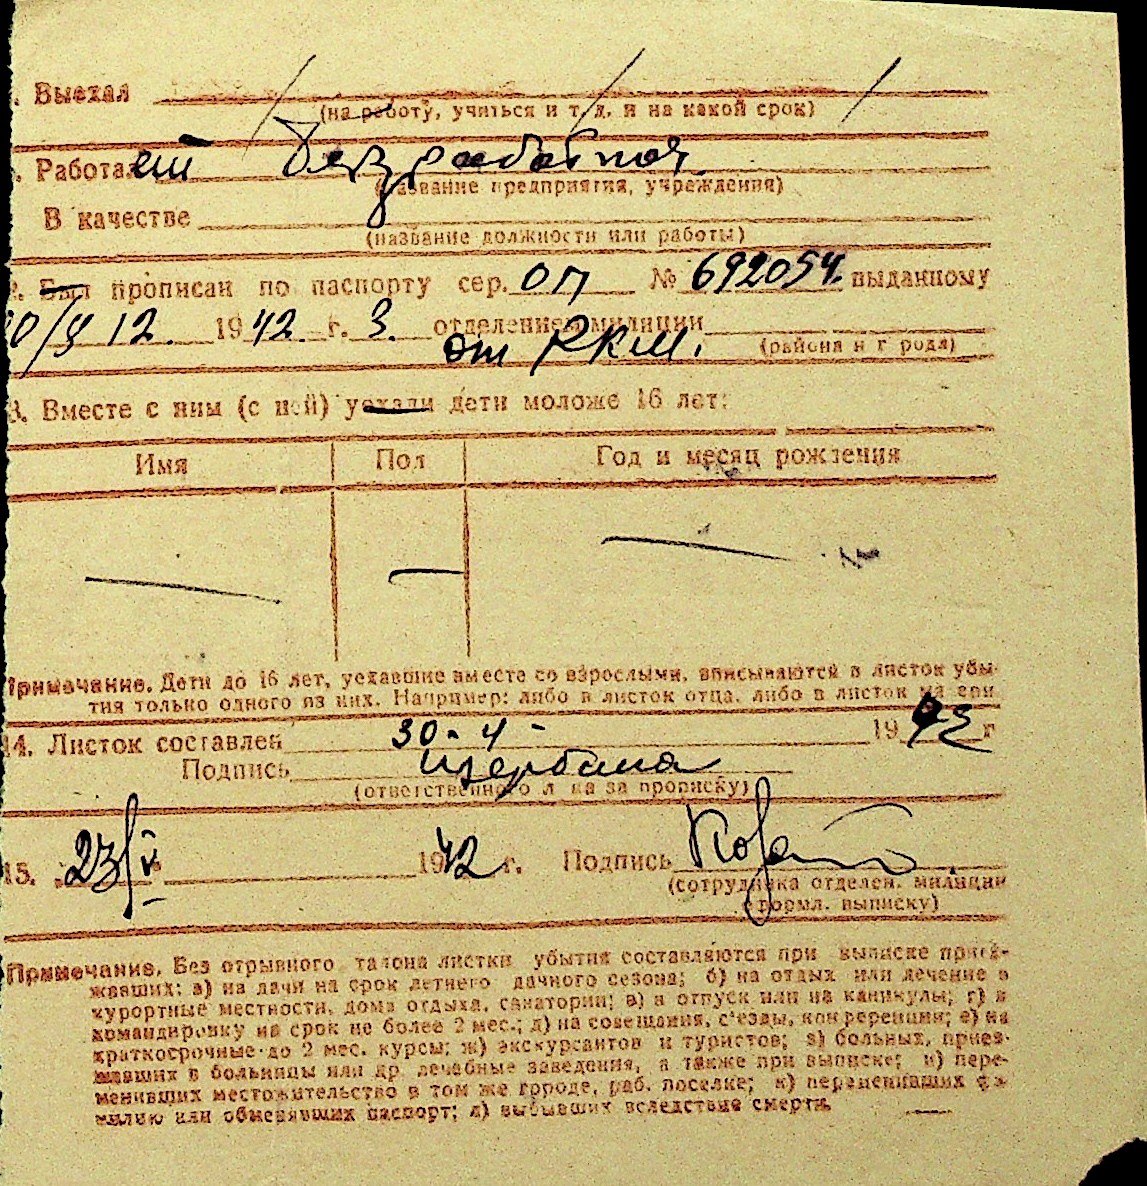 . Выехал
(на работу, учиться и т/д. и на какой срок)
. Работает безработная
(название предприятия, учреждения)
В качестве
(название должности или работы)
2. Был прописан по паспорту сер. ОП № 692054. выданному
12. 1942 г. 3. отделением милиции
от РКМ. (района и города)
3. Вместе с ним (с ней) уехали дети моложе 16 лет:
Имя Пол Год и месяц рождения
Примечание. Дети до 16 лет, уехавшие вместе со взрослыми, вписываются в листок убы-
тия только одного из них. Например: либо в листок отца, либо в листок матери
14. Листок составлен 30 - 4 - 1942 г
Подпись Щербина
(ответственного л ца за прописку)
15. 23/V 1942 г. Подпись
(сотрудника отделен. милиции
оформл. выписку)
Примечание. Без отрывного талона листки убытия составляются при выписке приез-
жавших: а) на дачи на срок летнего дачного сезона; б) на отдых или лечение в
курортные местности, дома отдыха, санатории; в) в отпуск или на каникулы; г) в
командировку на срок не более 2 мес.; д) на совещания, с'езды, конференция; е) на
краткосрочные до 2 мес. курсы; ж) экскурсантов и туристов; з) больных, приез-
жавших в больницы или др. лечебные заведения, а также при выписке; и) пере-
менивших местожительство в том же городе, раб. поселке; к) переменивших фа-
милию или обменявших паспорт; л) выбывших вследствие смерти.